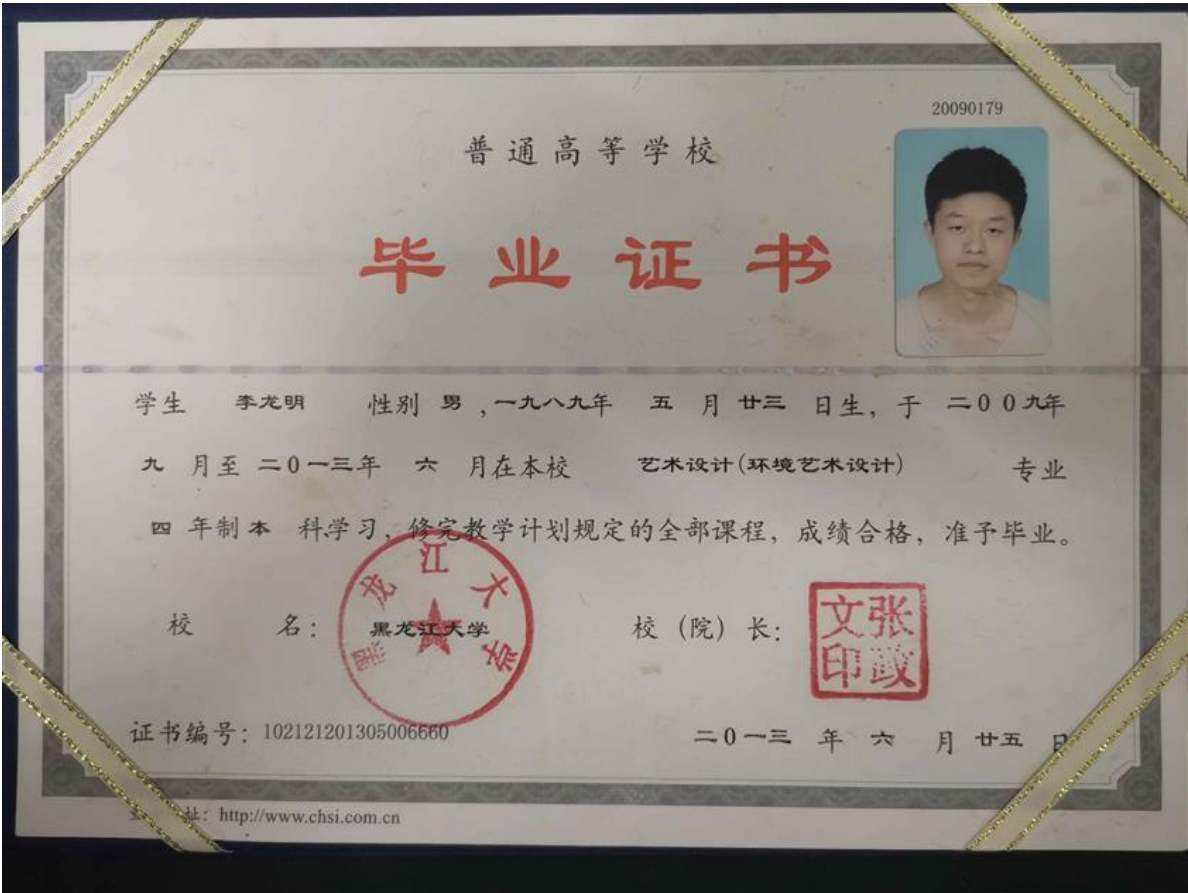 20090179
普通高等学校
毕业证书
学生 李龙明 性别 男 ,一九八九年 五 月 廿三 日生, 于 二00九年
九 月至 二0一三年 六 月在本校 艺术设计(环境艺术设计) 专业
四 年制 本 科学习, 修完教学计划规定的全部课程, 成绩合格, 准予毕业。
黑龙江大学
校 名: 黑龙江大学 校 (院) 长: 张文政印
证书编号: 102121201305006660 二0一三 年 六 月 廿五 日
址: http://www.chsi.com.cn